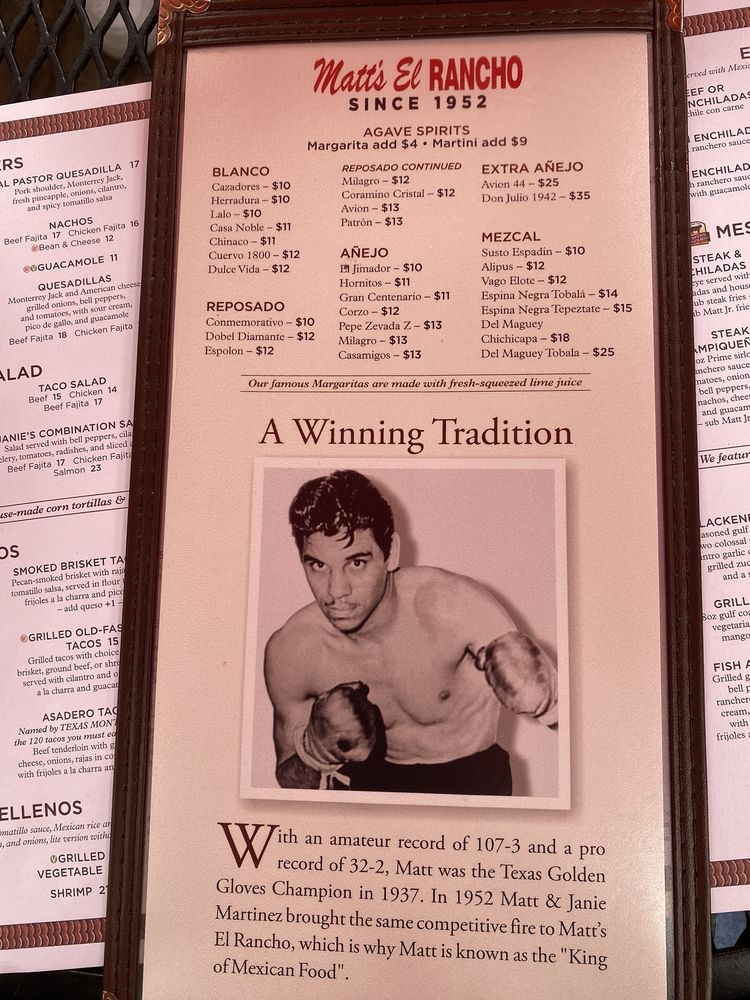 Matt's El RANCHO
SINCE 1952
AGAVE SPIRITS
Margarita add $4 • Martini add $9
BLANCO
Cazadores – $10
Herradura – $10
Lalo – $10
Casa Noble – $11
Chinaco – $11
Cuervo 1800 – $12
Dulce Vida – $12
REPOSADO
Conmemorativo – $10
Dobel Diamante – $12
Espolon – $12
REPOSADO CONTINUED
Milagro – $12
Coramino Cristal – $12
Avion – $13
Patrón – $13
AÑEJO
El Jimador – $10
Hornitos – $11
Gran Centenario – $11
Corzo – $12
Pepe Zevada Z – $13
Milagro – $13
Casamigos – $13
EXTRA AÑEJO
Avion 44 – $25
Don Julio 1942 – $35
MEZCAL
Susto Espadin – $10
Alipus – $12
Vago Elote – $12
Espina Negra Tobalá – $14
Espina Negra Tepeztate – $15
Del Maguey
Chichicapa – $18
Del Maguey Tobala – $25
Our famous Margaritas are made with fresh-squeezed lime juice
A Winning Tradition
With an amateur record of 107-3 and a pro
record of 32-2, Matt was the Texas Golden
Gloves Champion in 1937. In 1952 Matt & Janie
Martinez brought the same competitive fire to Matt's
El Rancho, which is why Matt is known as the "King
of Mexican Food".
PASTOR QUESADILLA 17
Pork shoulder, Monterrey Jack,
fresh pineapple, onions, cilantro,
and spicy tomatillo salsa
NACHOS
Beef Fajita 17 Chicken Fajita 16
Bean & Cheese 12
GUACAMOLE 11
QUESADILLAS
Monterrey Jack and American cheese
grilled onions, bell peppers,
and tomatoes, with sour cream,
pico de gallo, and guacamole
Beef Fajita 18 Chicken Fajita
TACO SALAD
Beef 15 Chicken 14
Beef Fajita 17
COMBINATION
Salad served with bell peppers,
tomatoes, radishes, and sliced
Beef Fajita 17 Chicken Fajita
Salmon 23
corn tortillas &
SMOKED BRISKET
Pecan-smoked brisket with
tomatillo salsa, served in flour
frijoles a la charra and
– add queso +1 –
GRILLED
TACOS 15
Grilled tacos with choice
brisket, ground beef, or
served with cilantro and
a la charra and
ASADERO
Named by TEXAS
the 120 tacos you must
Beef tenderloin with
cheese, onions, rajas in
with frijoles a la charra
sauce, Mexican rice
and onions, lite version
GRILLED
VEGETABLE
SHRIMP
served with
BEEF OR
ENCHILADAS
chile con carne
ranchero sauce
with
STEAK &
served with
sub steak fries
sub Matt Jr.
STEAK
oz Prime
ranchero sauce
onions
bell peppers,
nachos,
and
– sub Matt
We
garlic
grilled
and a
GRILL
8oz gulf
FISH
Grilled
bell
cream,
with
frijoles